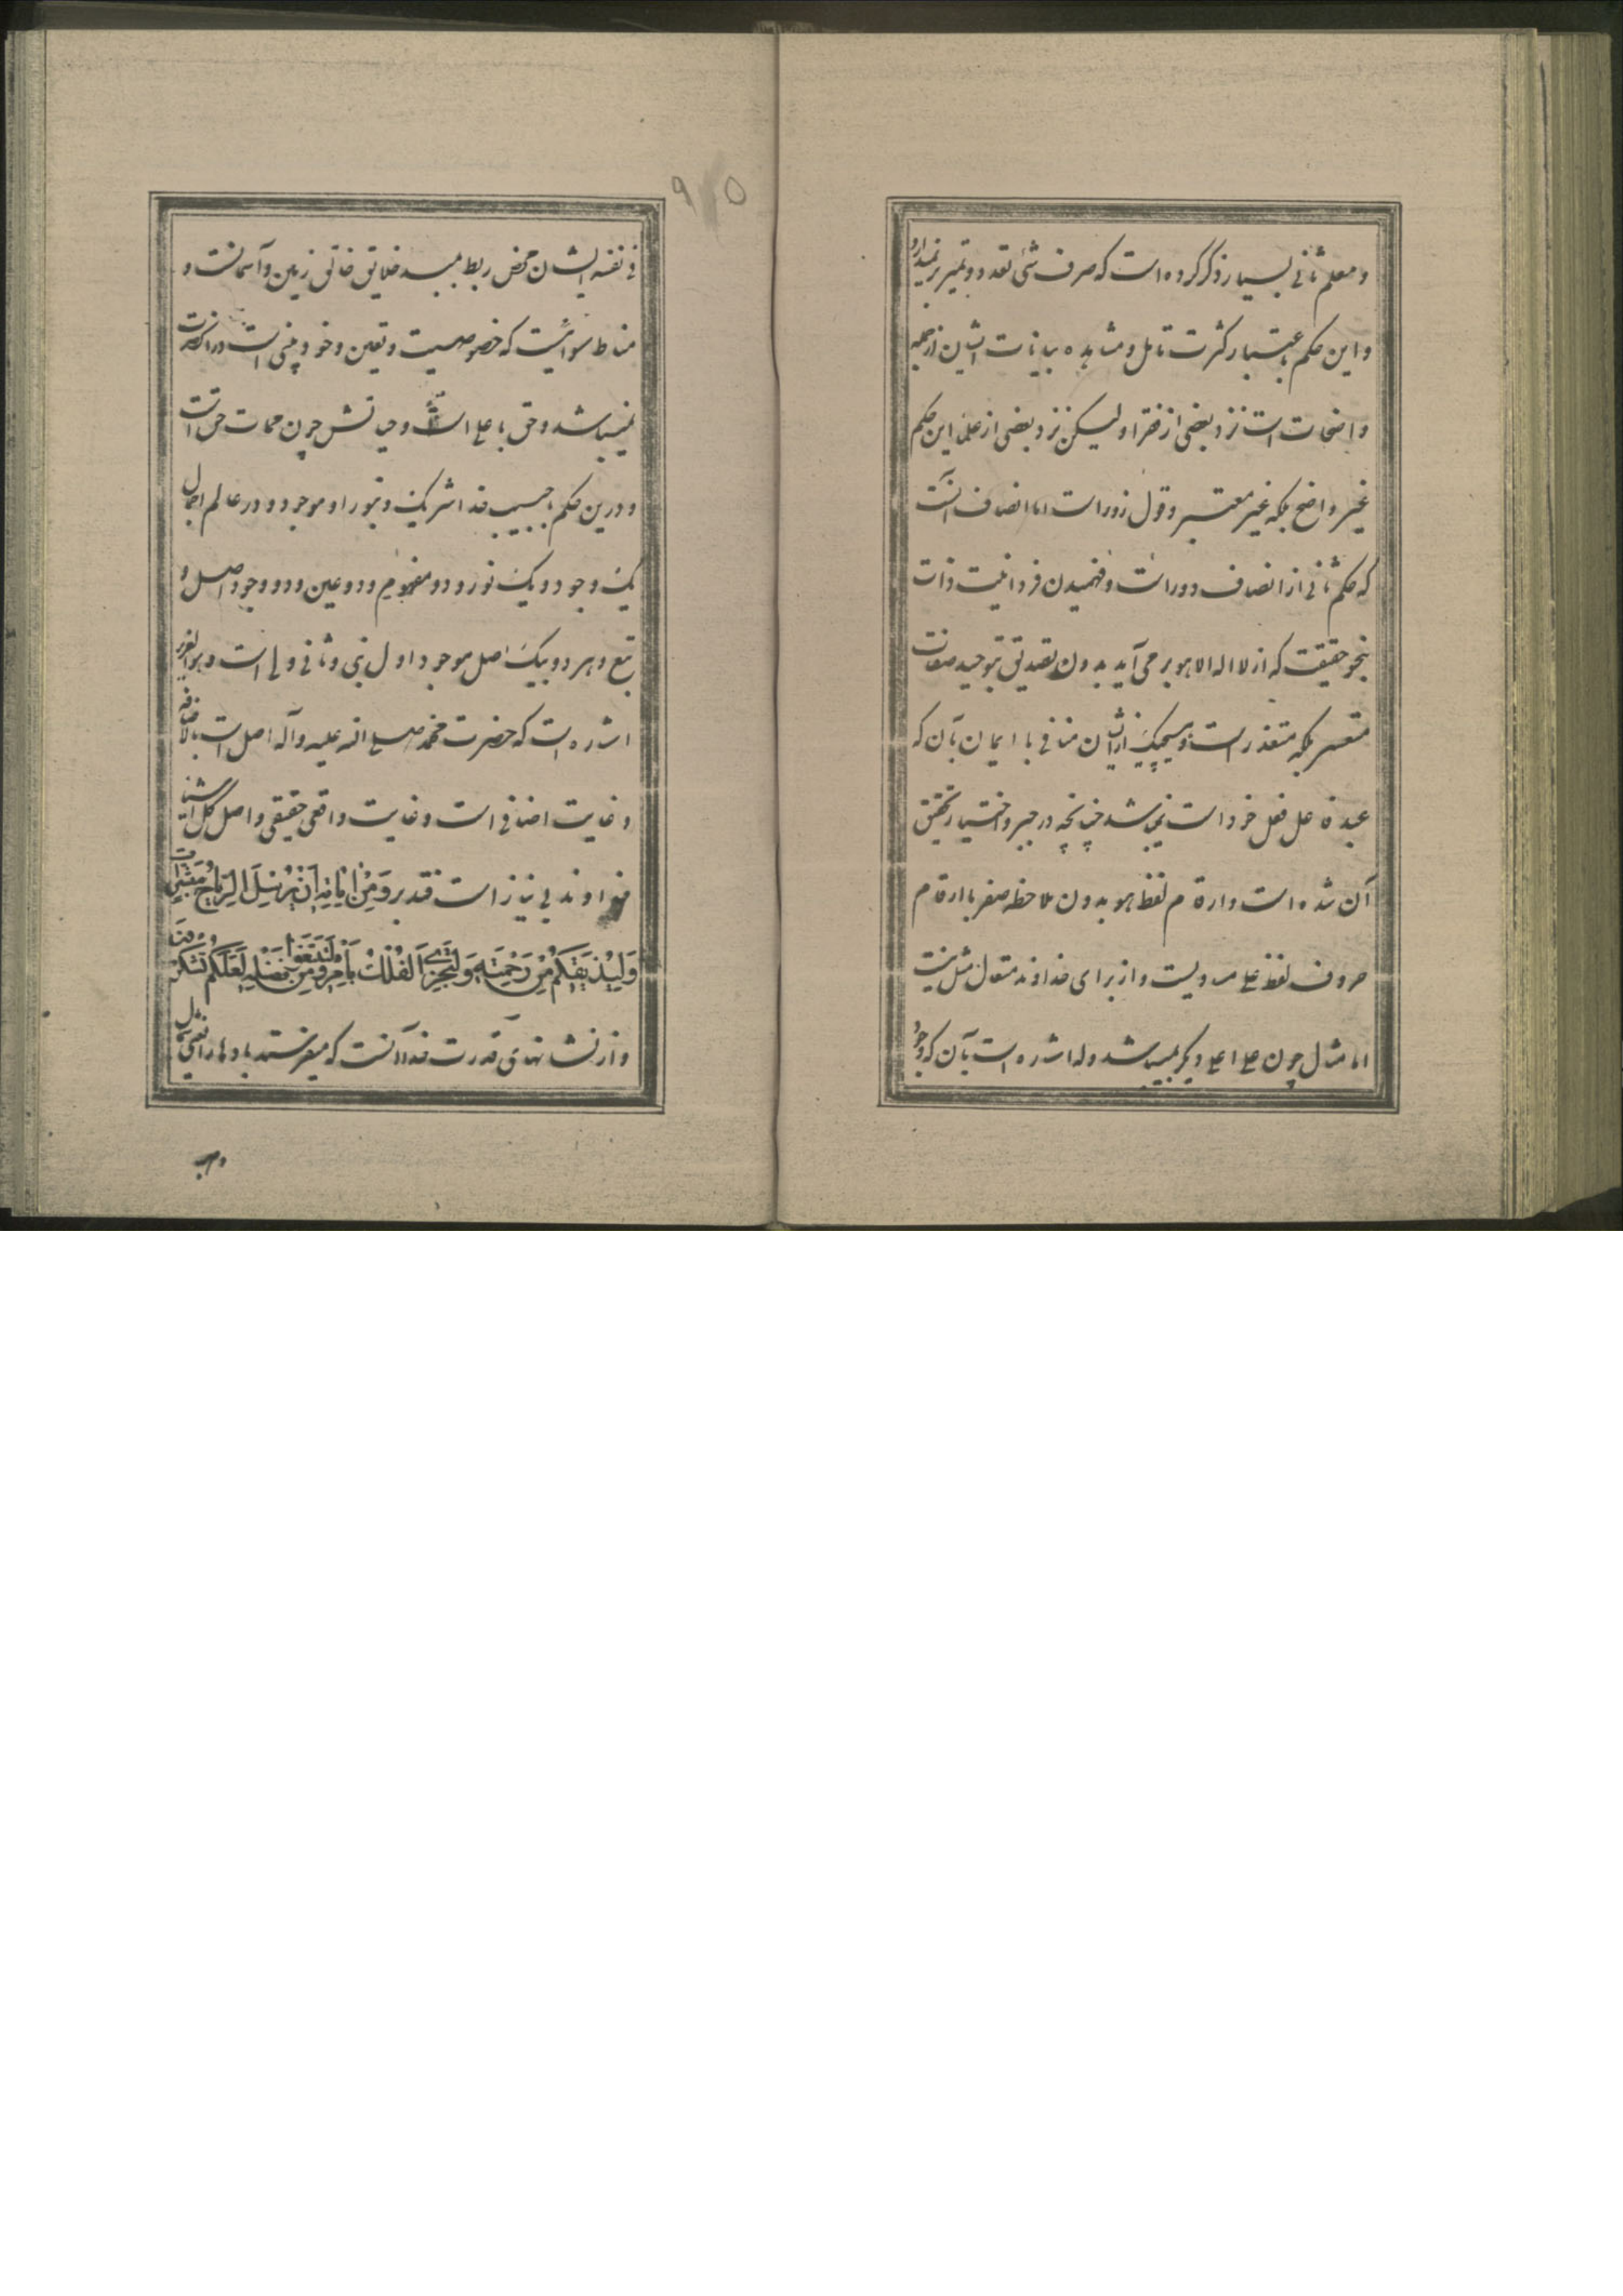 و معلم ثانی بسیار ذکر کرده است که صرف شئ تعدد و تمیز برنمیدارد
و این حکم باعتبار کثرت تامل و مشاهده بیانات ایشان از جمله
واضحات است نزد بعضی از فقرا و لیکن نزد بعضی از علما این حکم
غیر واضح بلکه غیر معتبر و قول زور است اما انصاف آنست
که حکم ثانی از انصاف دور است و فهمیدن فردانیت ذات
بنحو حقیقت که از لا اله الا هو بر می آید بدون تصدیق بتوحید صفات
متعسر بلکه متعذر است و هیچیک از ایشان منافی با ایمان بآن که
عبد فاعل فعل خود است نمیباشد چنانچه در جبر و اختیار تحقیق
آن شده است و ارقام لفظ هو بدون ملاحظه صفر با ارقام
حروف لفظ علی مساویست و از برای خداوند متعال مثل نیست
اما مثال چون علی اعلی و یکبر میباشد و له اشاره است بآن که وجود
فی نفسه ایشان محض ربط بمبدء خلایق خالق زمین و آسمانست و
مناط سوائیت که خصوصیت و تعین و خود بینی است در آنحضرت
نمیباشد و حق با علی است و حیاتش چون ممات حق است
و درین حکم با حبیب خدا شریک و بنور او موجود و در عالم اجمال
یک وجود و یک نور و دو مفهوم و دو عین و دو وجود اصل و
تبع و هر دو بیک اصل موجود اول نبی و ثانی ولی است و هو العزیز
اشاره است که حضرت محمد صلی الله علیه و آله اصل است بالاضافه
و غایت اضافی است و غایت واقعی حقیقی و اصل کل اشیا
خداوند بی نیاز است فتدبر وَمِنْ اٰیٰاتِهِ اَنْ یُرْسِلَ الرِّیٰاحَ مُبَشِّرٰاتٍ
وَلِیُذیقَکُمْ مِنْ رَحْمَتِهِ وَلِتَجْرِیَ الْفُلْكُ بِاَمْرِهِ وَلِتَبْتَغُوا مِنْ فَضْلِهِ لَعَلَّکُمْ تَشْکُرُونَ
و از نشانهای قدرت خدا آنست که میفرستد بادها را یعنی شمال